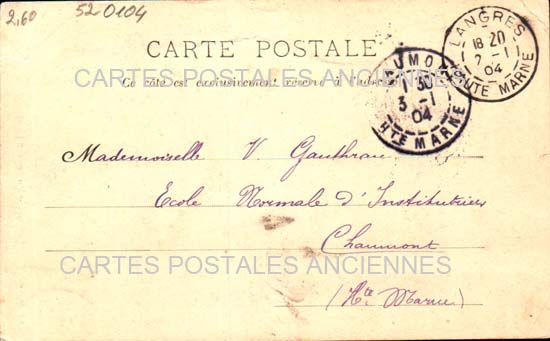 2,60
52-0104
CARTE POSTALE
CARTES POSTALES ANCIENNES
Ce côté est exclusivement réservé à l'adresse
LANGRES
18 20
2 -1
04
HAUTE MARNE
UMO
1 30
3 -1
04
HTE MARNE
Mademoiselle V. Gauthran
Ecole Normale d'Institutrices
Chaumont
CARTES POSTALES ANCIENNES
(Hte Marne)